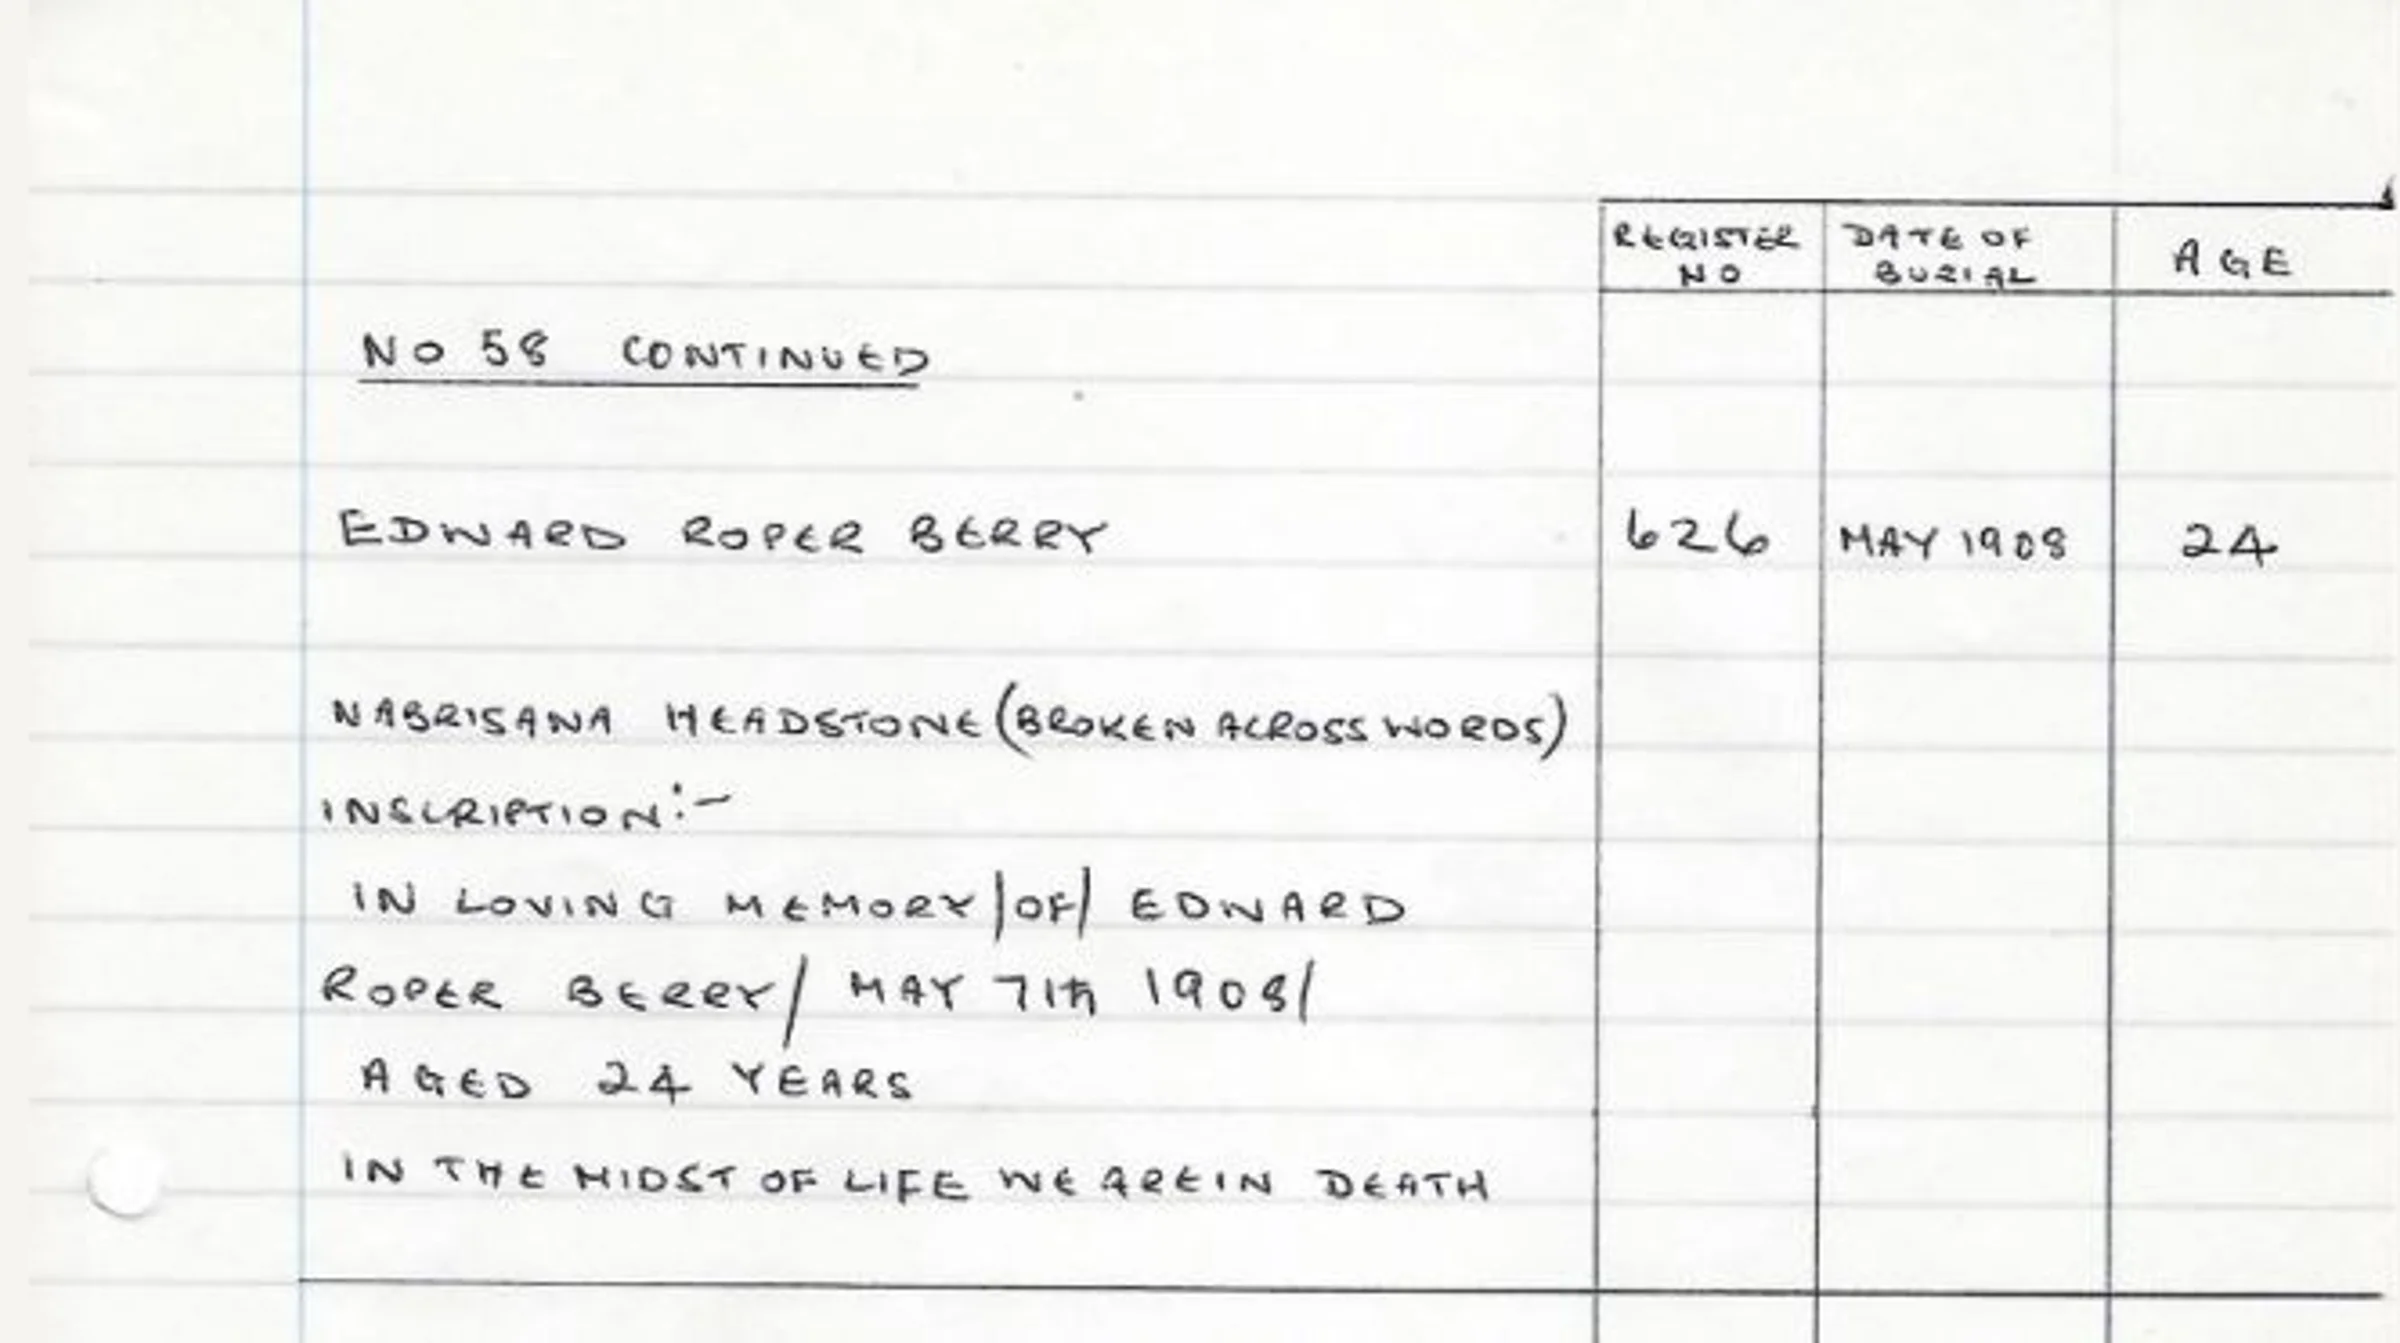 REGISTER NO DATE OF BURIAL AGE
NO 58 CONTINUED
EDWARD ROPER BERRY 626 MAY 1908 24
NABRISANA HEADSTONE (BROKEN ACROSS WORDS)
INSCRIPTION:-
IN LOVING MEMORY/OF/ EDWARD
ROPER BERRY/ MAY 7TH 1908/
AGED 24 YEARS
IN THE MIDST OF LIFE WE ARE IN DEATH